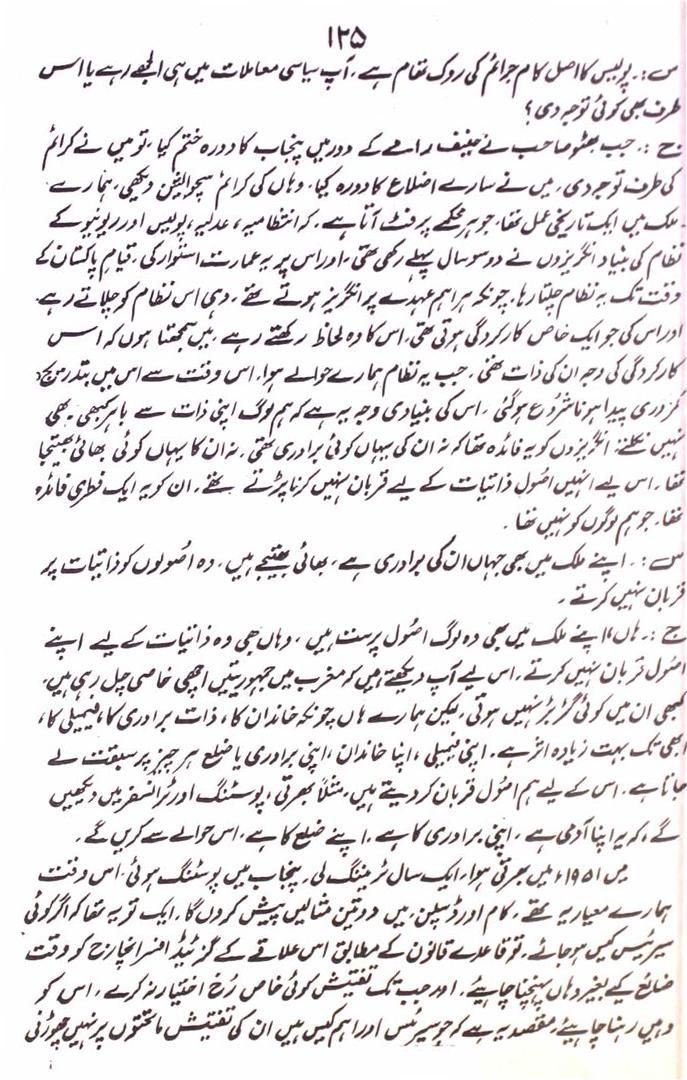 ۱۲۵
س :۔ پولیس کا اصل کام جرائم کی روک تھام ہے، آپ سیاسی معاملات میں ہی الجھے رہے یا اس
طرف بھی کوئی توجہ دی؟
ج :۔ جب بھٹو صاحب نے حنیف رامے کے دور میں پنجاب کا دورہ ختم کیا، تو میں نے کرائم
کی طرف توجہ دی، میں نے سارے اضلاع کا دورہ کیا، وہاں کی کرائم سچوایشن دیکھی، ہمارے
ملک میں ایک تاریخی عمل تھا، جو ہر محکمے پر فٹ آتا ہے، کہ انتظامیہ، عدلیہ، پولیس اور ریونیو کے
نظام کی بنیاد انگریزوں نے دو سو سال پہلے رکھی تھی، اور اس پر یہ عمارت استوار کی، قیام پاکستان کے
وقت تک یہ نظام چلتا رہا، چونکہ ہر اہم عہدے پر انگریز ہوتے تھے، وہی اس نظام کو چلاتے رہے،
اور اس کی جو ایک خاص کارکردگی ہوتی تھی، اس کا وہ لحاظ رکھتے رہے، میں سمجھتا ہوں کہ اس
کارکردگی کی وجہ ان کی ذات تھی، جب یہ نظام ہمارے حوالے ہوا، اس وقت سے اس میں بتدریج
کمزوری پیدا ہونا شروع ہو گئی، اس کی بنیادی وجہ یہ ہے کہ ہم لوگ اپنی ذات سے باہر کبھی بھی
نہیں نکلتے، انگریزوں کو یہ فائدہ تھا کہ نہ ان کی یہاں کوئی برادری تھی، نہ ان کا یہاں کوئی بھائی بھتیجا
تھا، اس لیے انہیں اصول ذاتیات کے لیے قربان نہیں کرنا پڑتے تھے، ان کو یہ ایک فطری فائدہ
تھا، جو ہم لوگوں کو نہیں تھا۔
س :۔ اپنے ملک میں بھی جہاں ان کی برادری ہے، بھائی بھتیجے ہیں، وہ اصولوں کو ذاتیات پر
قربان نہیں کرتے۔
ج :۔ ہاں! اپنے ملک میں بھی وہ لوگ اصول پرست ہیں، وہاں بھی وہ ذاتیات کے لیے اپنے
اصول قربان نہیں کرتے، اس لیے آپ دیکھتے ہیں کہ مغرب میں جمہوریتیں اچھی خاصی چل رہی ہیں،
کبھی ان میں کوئی گڑبڑ نہیں ہوتی، لیکن ہمارے ہاں چونکہ خاندان کا، ذات برادری کا، فیملی کا،
ابھی تک بہت زیادہ اثر ہے، اپنی فیملی، اپنا خاندان، اپنی برادری یا ضلع ہر چیز پر سبقت لے
جاتا ہے، اس کے لیے ہم اصول قربان کر دیتے ہیں، مثلاً بھرتی، پوسٹنگ اور ٹرانسفر میں دیکھیں
گے، کہ یہ اپنا آدمی ہے، اپنی برادری کا ہے، اپنے ضلع کا ہے، اس حوالے سے کریں گے۔
میں ۱۹۵۱ء میں بھرتی ہوا، ایک سال ٹریننگ لی، پنجاب میں پوسٹنگ ہوئی، اس وقت
ہمارے معیار یہ تھے، کام اور ڈسپلن، میں دو تین مثالیں پیش کروں گا، ایک تو یہ تھا کہ اگر کوئی
سیریئس کیس ہو جائے، تو قاعدے قانون کے مطابق اس علاقے کے گزیٹڈ افسر انچارج کو وقت
ضائع کیے بغیر وہاں پہنچنا چاہیئے، اور جب تک تفتیش کوئی خاص رخ اختیار نہ کرے، اس کو
وہیں رہنا چاہیئے، مقصد یہ ہے کہ جو سیریئس اور اہم کیس ہیں ان کی تفتیش ماتحتوں پر نہیں چھوڑنی